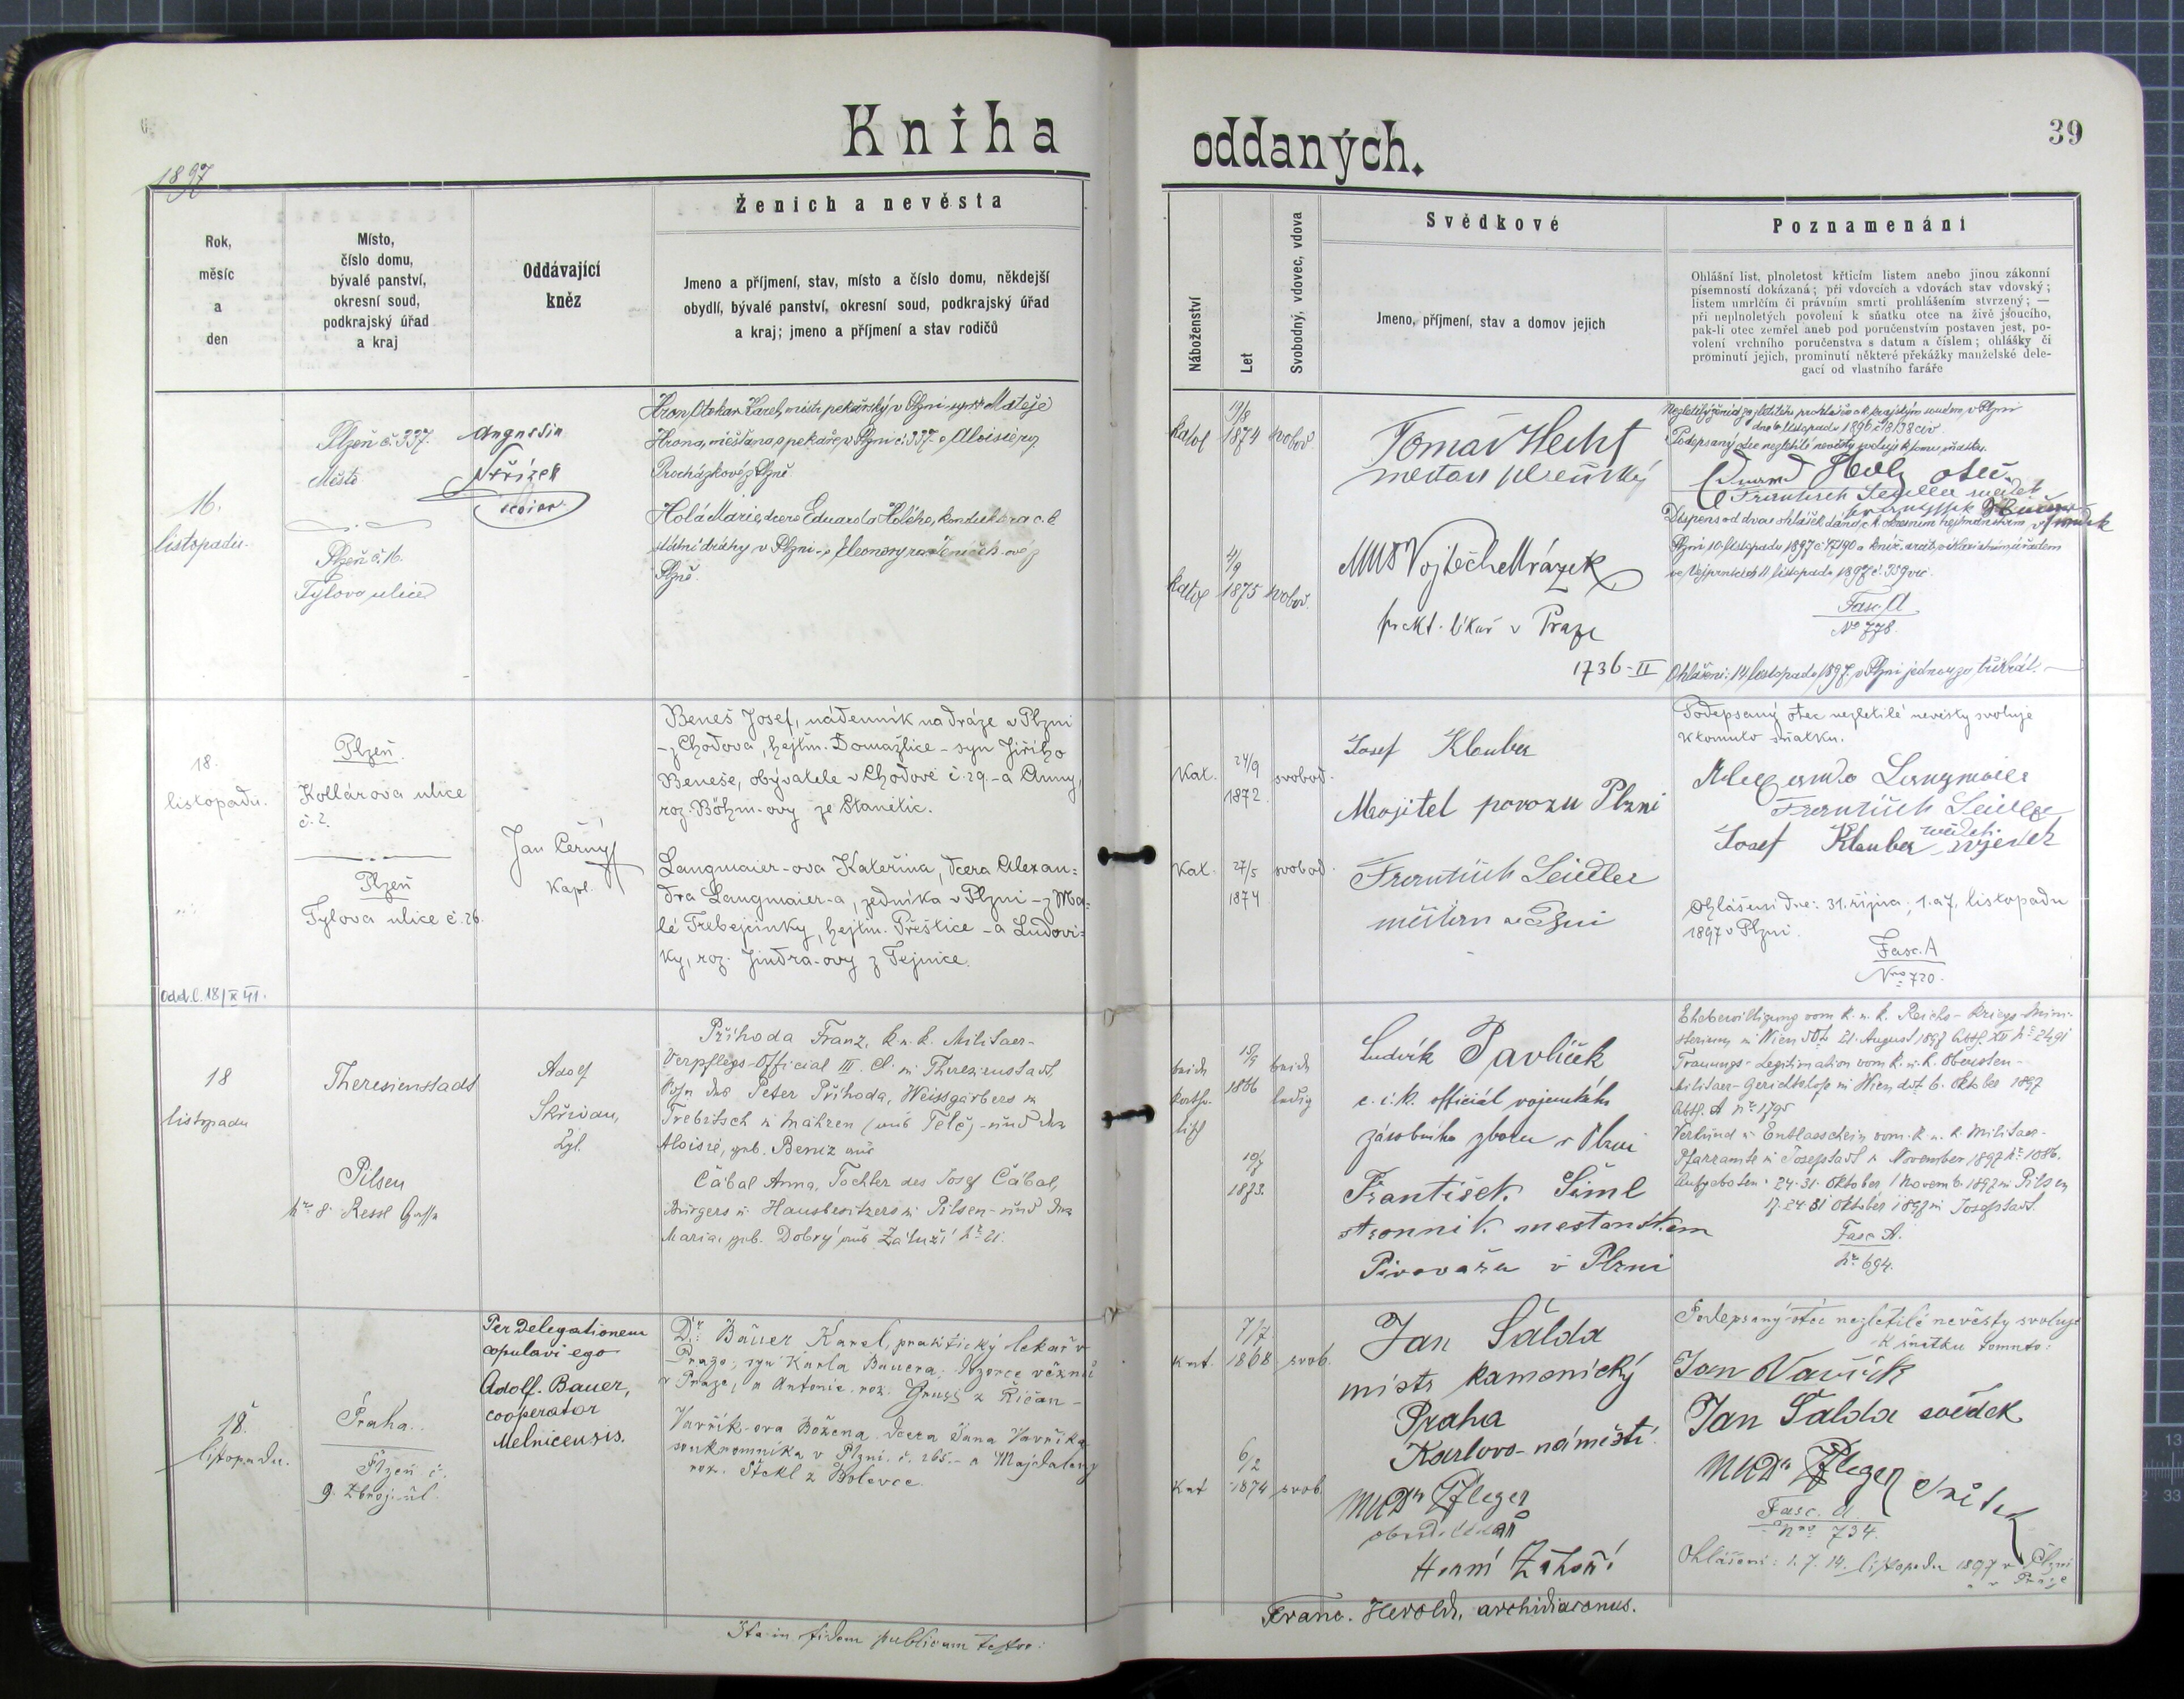 Kniha oddaných.
39
1897
Rok,
měsíc
a
den
Místo,
číslo domu,
bývalé panství,
okresní soud,
podkrajský úřad
a kraj
Oddávající
kněz
Ženich a nevěsta
Jmeno a příjmení, stav, místo a číslo domu, někdejší
obydlí, bývalé panství, okresní soud, podkrajský úřad
a kraj; jmeno a příjmení a stav rodičů
Náboženství
Let
Svobodný, vdovec, vdova
Svědkové
Jmeno, příjmení, stav a domov jejich
Poznamenání
Ohlášní list, plnoletost křticím listem anebo jinou zákonní
písemností dokázaná; při vdovcích a vdovách stav vdovský;
listem umrlčím či právním smrti prohlášením stvrzený; —
při neplnoletých povolení k sňatku otce na živě jsoucího,
pak-li otec zemřel aneb pod poručenstvím postaven jest, po-
volení vrchního poručenstva s datum a číslem; ohlášky či
prominutí jejich, prominutí některé překážky manželské dele-
gací od vlastního faráře
16.
listopadu
Plzeň č. 337.
Město
Plzeň č. 16.
Tylova ulice
Augustin
Hron Otokar Karel, mistr pekařský v Plzni, syn Matěje
Hrona, měšťana a pekaře v Plzni č. 337. a Aloisie roz.
Procházkové z Plzně.
Holá Marie, dcera Eduarda Holého, konduktora c. k.
státní dráhy v Plzni a Eleonory roz. Jeníček-ové z
Plzně.
katol
19/8
1874
svobod.
katol
4/9
1875
svobod.
Tomáš Hecht
MUDr Vojtěch Mrázek
prakt. lékař v Praze
1736-II
Podepsaný otec nezletilé nevěsty svoluje k tomu sňatku.
František Seidler svědek
Plzni 10. listopadu 1897 č. 17190
Fasc. A
No 778.
Ohlášeni: 14 listopadu 1897 v Plzni jednou za třikrát.
18.
listopadu.
Odd. l. 18/X VII.
Plzeň.
Kollárova ulice
č. 2.
Plzeň
Tylova ulice č. 26.
Jan Černý
Kapl.
Beneš Josef, nádenník na dráze v Plzni
- z Chodova, hejtm. Domažlice - syn Jiřího
Beneše, obyvatele v Chodově č. 29. - a Anny,
roz. Böhm-ovy ze Stanětic.
Langmaier-ova Kateřina, dcera Alexan=
dra Langmaier-a, zedníka v Plzni - z Ma=
lé Trebejčinky, hejtm. Přeštice - a Ludovi=
ky, roz. Jindra-ovy z Tejnice.
Kat.
24/9
1872.
svobod.
Kat.
27/5
1874
svobod.
Josef Klauber
Maojitel povozu Plzni
František Seidler
Podepsaný otec nezletilé nevěsty svoluje
k tomuto sňatku.
Langmaier
František Seidler
svědek
Josef Klauber svjedek
Ohlášeni dne: 31. října, 1. a 7. listopadu
1897 v Plzni.
Fasc. A
Nro 720.
18
listopadu
Theresienstadt
Pilsen
Nro 8. Resel Gasse
Adolf
Příhoda Franz, k. u. k. Militaer-
Verpflegs-Official III. Cl. in Theresienstadt
Sohn des Peter Příhoda, Weissgärbers in
Trebitsch in Mähren (aus Telč) - und der
Aloisie, geb. Beniz aus
Čábal Anna, Tochter des Josef Čábal,
Bürgers u. Hausbesitzers in Pilsen - und der
Maria, geb. Dobrý aus Záluží No 21.
beide
katho-
lisch
15/9
1866
beide
ledig
10/7
1873.
Ludvík Pavlíček
c. i k. officiál vojenského
zásobního v Plzni
František Šiml
Pivovaru v Plzni
Ehebewilligung vom k. u. k. Reichs-Kriegs-Mini-
sterium in Wien ddt. 21. August 1897 Abth. XII No 2491
Trauungs-Legitimation vom k. u. k. Obersten-
Militaer-Gerichtshof in Wien ddt 6. Oktober 1897
Abth. A No 1795
Verkünd u. Entlasschein vom k. u. k. Militaer-
Pfarramte in Josefstadt November 1897 No 1086.
Aufgeboten: 24. 31. Oktober 1 November 1897 in Pilsen
17. 24 31 Oktober 1897 in Josefstadt.
Fasc A.
No 694.
18.
listopadu.
Praha.
Plzeň č.
9. Zbroj. ul.
Per delegationem
copulavi ego
Adolf. Bauer,
cooperator
Melnicensis.
Dr. Bauer Karel, praktický lekař v
Praze, syn Karla Bauera, dozorce věznů
v Praze, a Antonie roz. Gruss z Říčan -
Vavřík-ova Božena, dcera Jana Vavříka,
soukromníka v Plzni č. 265. - a Majdaleny
roz. Štekl z Bolevce.
Kat.
7/7
1868
svob.
Kat
6/2
1874
svob.
Jan Šálda
mistr kamenický
Praha
Karlovo-náměstí.
MUDr Pfleger
Podepsaný otec nezletilé nevěsty svoluje
k sňatku tomuto:
Jan Vavřík
Jan Šálda svědek
MUDr Pfleger svědek
Fasc. A.
Nro 734.
Ohlášeni: 1. 7. 14. listopadu 1897 v Plzni
" v Praze
Ita in fidem publicam testor:
Franc. Herold, archidiaconus.